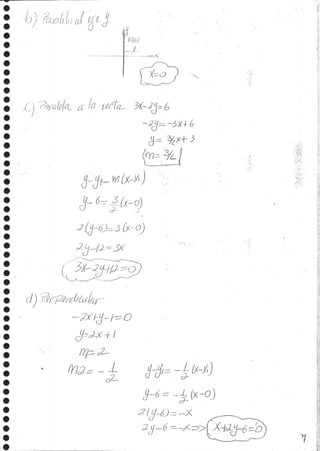 b) Paralela al eje y
y
x
x=0
c) Paralela a la recta 3x-2y=6
-2y=-3x+6
y= 3/2x+3
m= 3/2
y-y1=m(x-x1)
y-6=3/2(x-0)
2(y-6)=3(x-0)
2y-12=3x
3x-2y+12=0
d) Perpendicular
-2x+y-1=0
y=2x+1
m=2
m2= -1/2
y-y1= -1/2(x-x1)
y-6= -1/2(x-0)
2(y-6)=-x
2y-6=-x=> x+2y-6=0